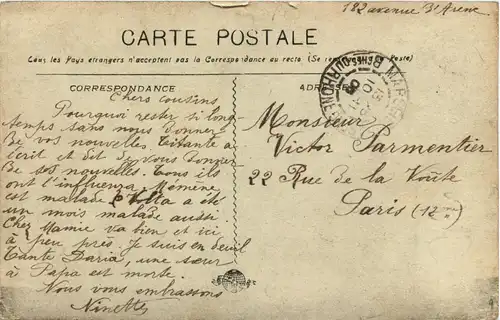 182 avenue d'Arenc
CARTE POSTALE
Tous les Pays étrangers n'acceptent pas la Correspondance au recto (Se renseigner à la Poste)
CORRESPONDANCE
ADRESSE
MARSEILLE
BCHES DU RHONE
Chers cousins
Pourquoi rester si long-
temps sans nous donner
de vos nouvelles. Titante a
écrit et dit de vous donner
de ses nouvelles. Tous ils
ont l'influenza. Mémène
est malade a été
un mois malade aussi.
Cher Mamie va bien et ici
à peu près. Je suis en deuil
Tante Daria, une sœur
à Papa est morte.
Nous vous embrassons
Ninette
Monsieur
Victor Parmentier
22 Rue de la Voûte
Paris (12